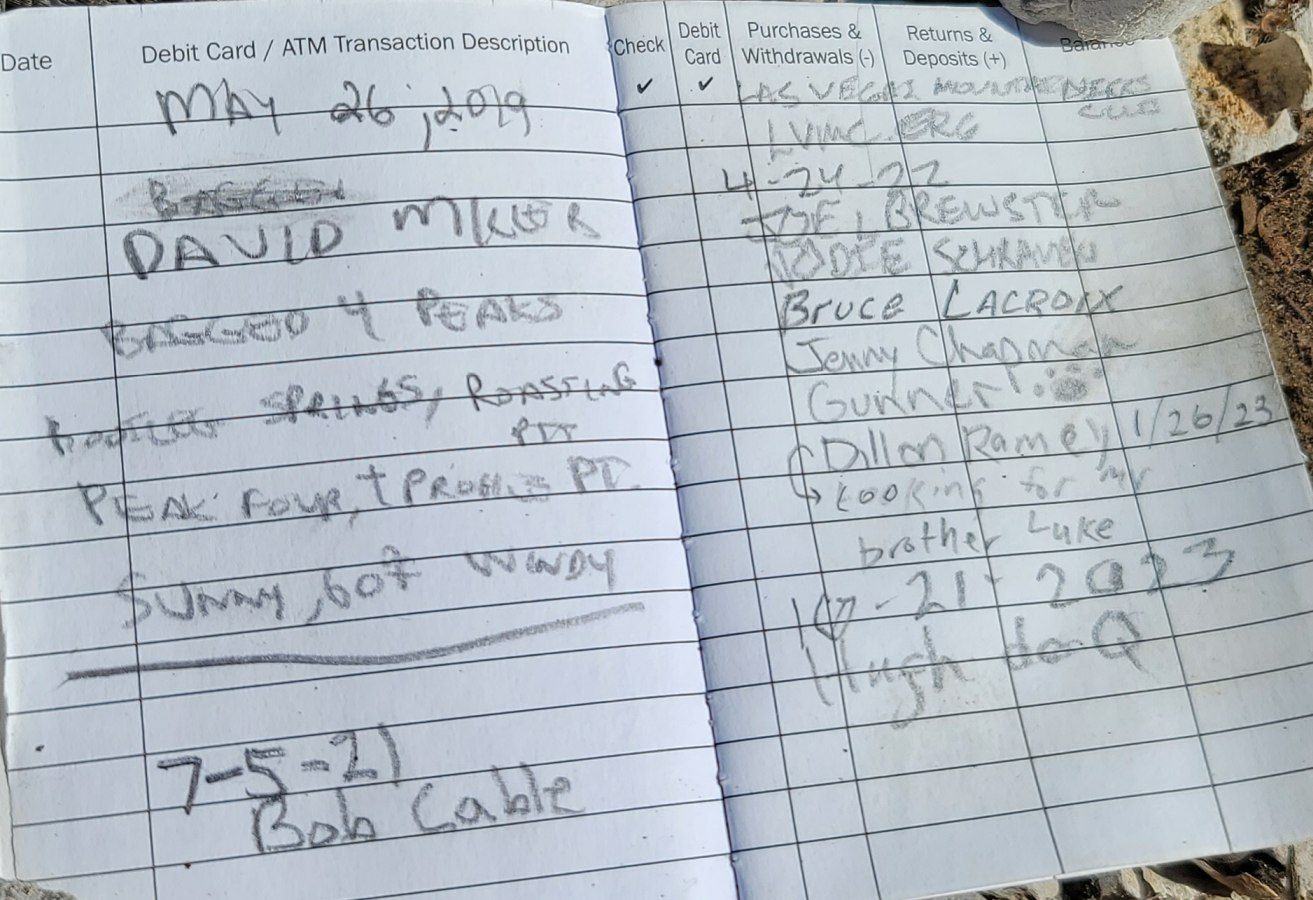 Date
Debit Card / ATM Transaction Description
MAY 26, 2019
BAGGED
DAVID MILLER
BAGGED 4 PEAKS
SPRINGS, ROASTING
PIT
PEAK FOUR, + PT.
SUNNY, 60° WINDY
7-5-21
Bob Cable
Check
Debit
Card
Purchases &
Withdrawals (-)
Returns &
Deposits (+)
Balance
✓ ✓
LAS VEGAS MOUNTAINEERS
CLUB
LVMC.ORG
4-24-22
JOEL BREWSTER
JODIE SCHRAVEN
Bruce LACROIX
Jenny Chapman
Gunner!
Dillon Ramey 1/26/23
Looking for my
brother Luke
-21-2023
Hugh